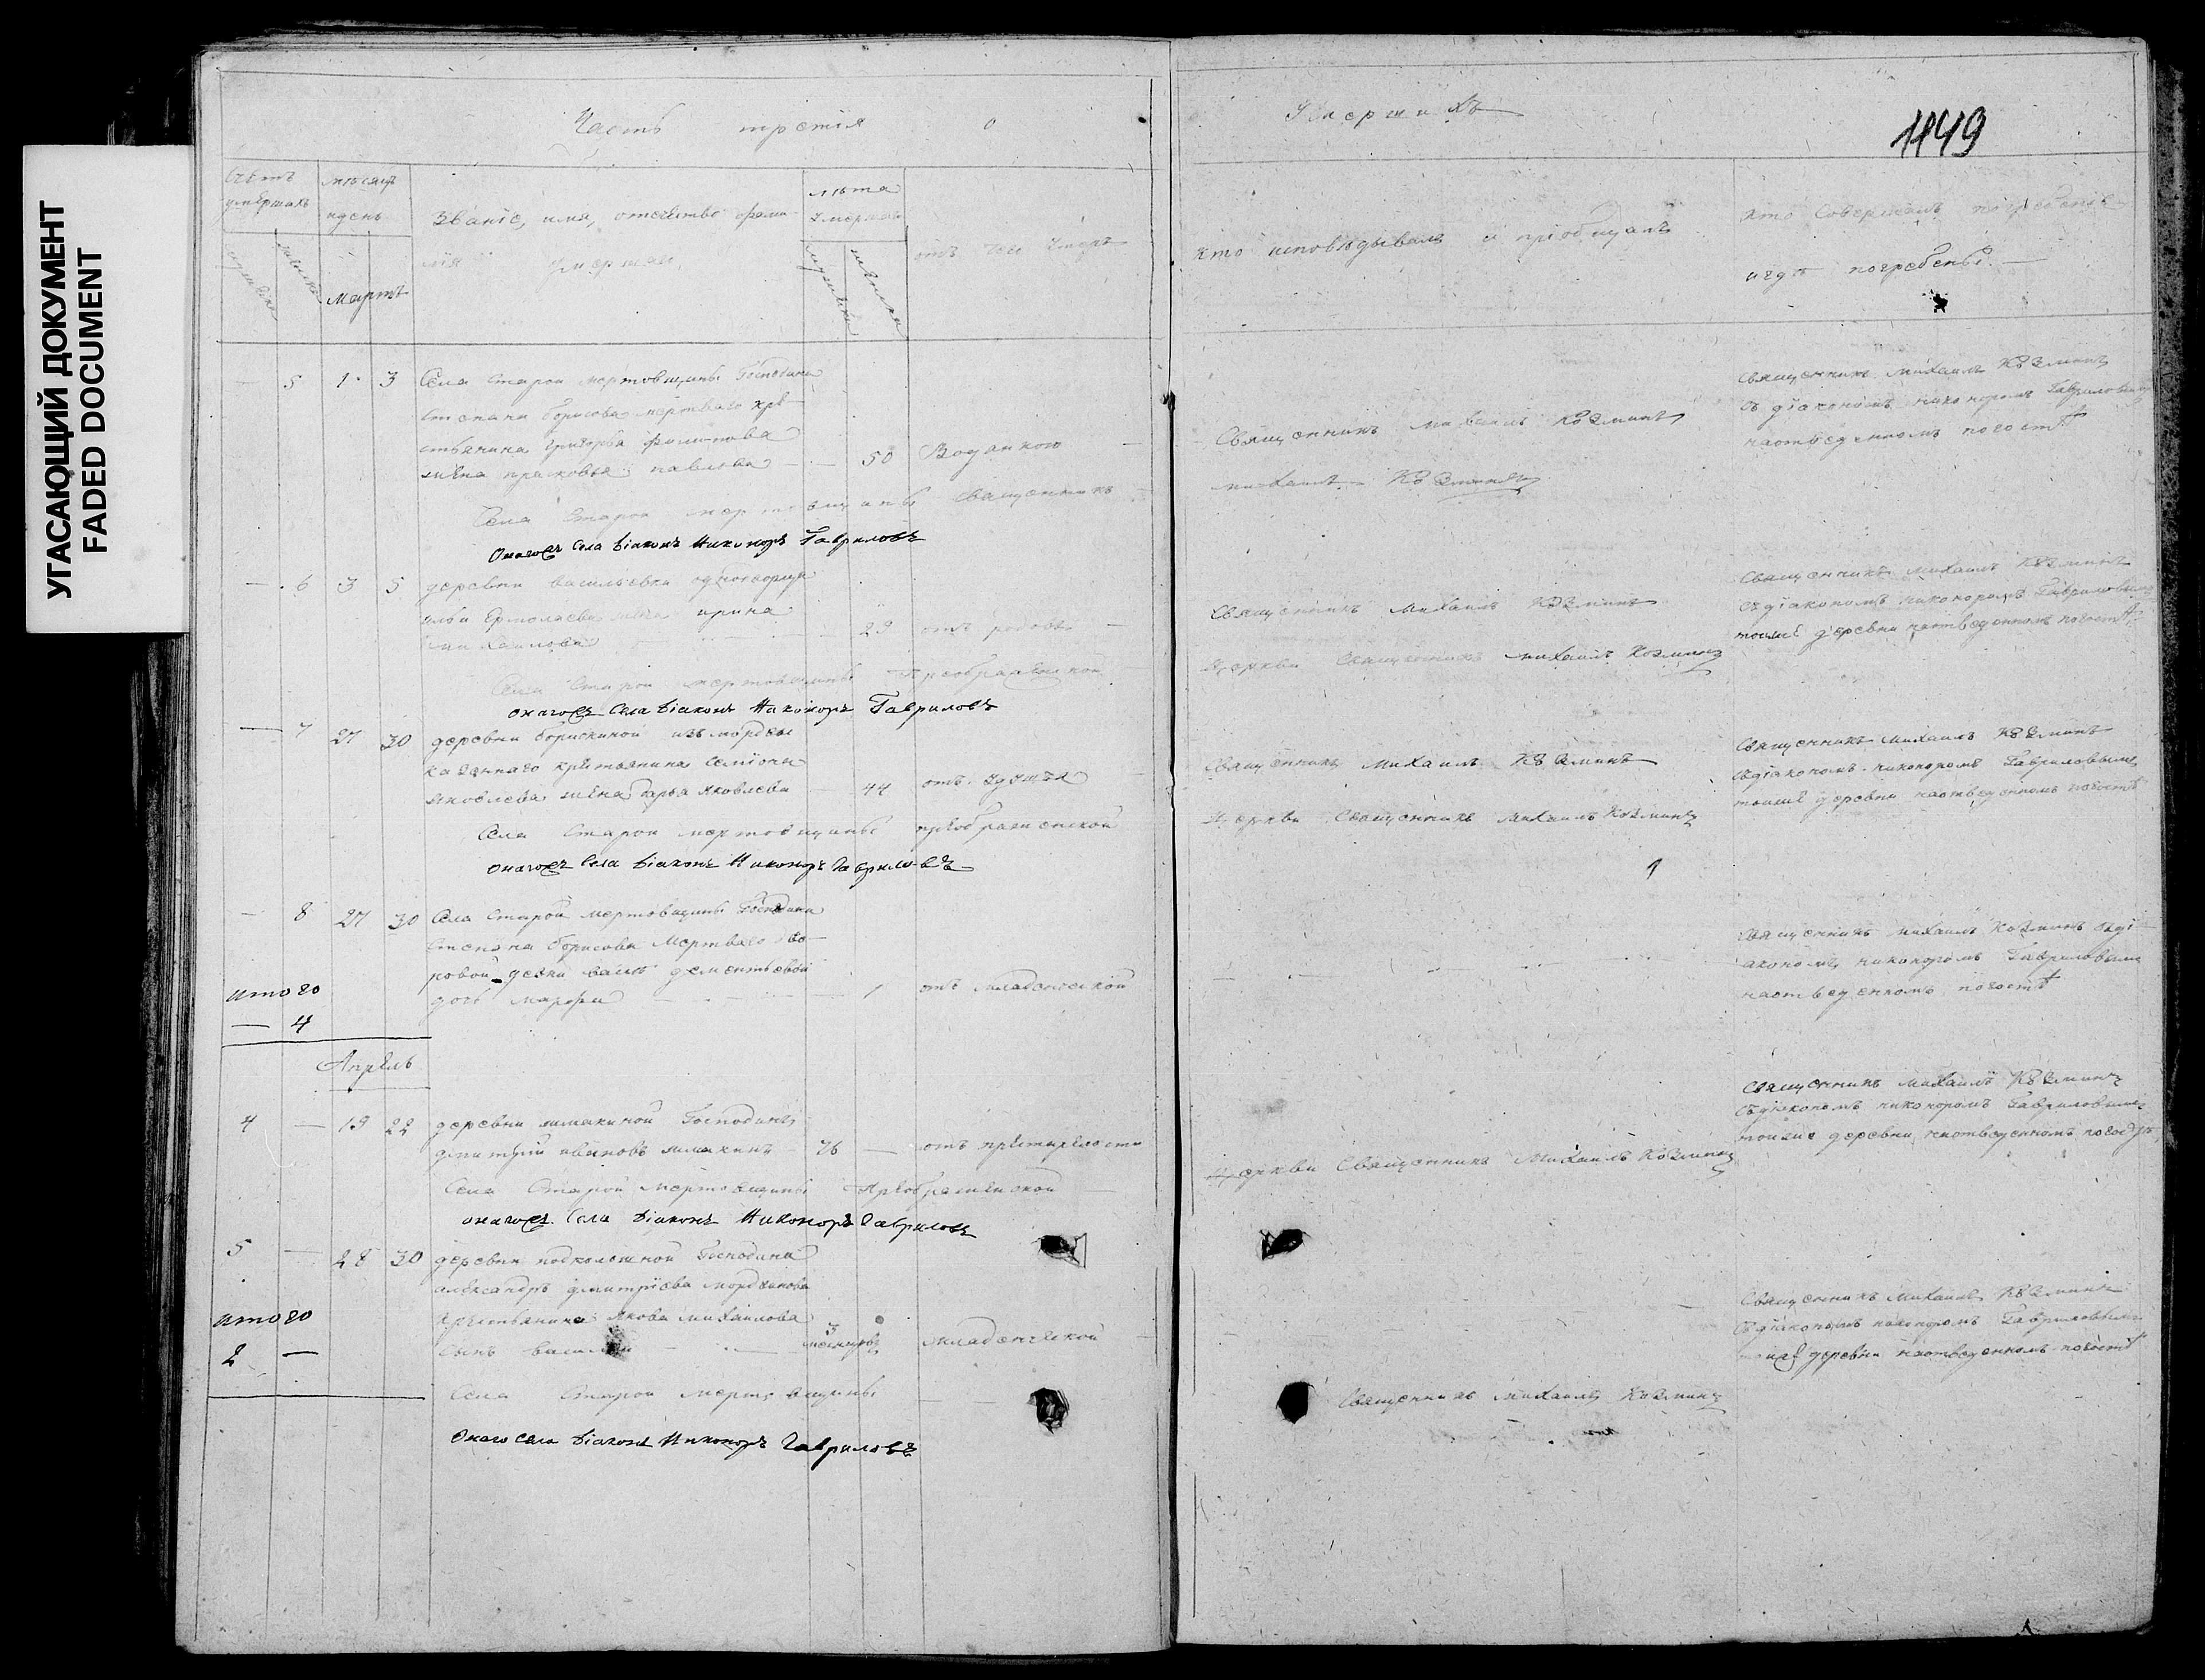 УГАСАЮЩИЙ ДОКУМЕНТ
FADED DOCUMENT
Часть третія о
Умершихъ
1449
Счетъ умершихъ
мѣсяцъ и день
Мартъ
Званіе, имя, отечество и фами-
лія умершаго.
лѣта умершаго
отъ чего умеръ
кто исповѣдывалъ и пріобщалъ
кто Совершалъ погребеніе
и гдѣ погребены.
— 5 1 3 Села Старой мертовщины Господина
Степана борисова мертваго кре-
стьянина григорья филипова
жена прасковья павлова — 50 Водяною
Священникъ михаилъ Козминъ
Священникъ михаилъ Козминъ
съ діакономъ никоноромъ Гавриловымъ
на отведенномъ погостѣ
Села Старой мертовщины Священникъ
михаилъ Козминъ
Онагожъ Села Діаконъ Никоноръ Гавриловъ
— 6 3 5 деревни васильевки однодворца
ильи Ермолаева жена ирина
михаилова — 29 отъ родовъ —
Священникъ Михаилъ Козминъ
Священникъ михаилъ Козминъ
съ діакономъ никоноромъ Гавриловымъ
тоижѣ деревни на отведенномъ погостѣ
Села Старой мертовщины Преображенской
Церкви Священникъ михаилъ Козминъ
онагожъ Села Діаконъ Никоноръ Гавриловъ
— 7 27 30 деревни борискиной изъ мордвы
казеннаго крестьянина Семіона
яковлева жена дарья яковлева — 44 отъ удушья
Священникъ Михаилъ Козминъ
Священникъ михаилъ Козминъ
съ діакономъ никоноромъ Гавриловымъ
тоижѣ деревни на отведенномъ погостѣ
Села Старой мертовщины преображенской
Церкви Священникъ Михаилъ Козминъ
онагожъ Села Діаконъ Никоноръ Гавриловъ
— 8 27 30 Села Старой мертовщины Господина
Степана борисова Мертваго дво-
ровой девки дементьевой
дочь марфа — 1 отъ младенческой
Священникъ михаилъ Козминъ съ ді-
акономъ никоноромъ Гавриловымъ
на отведенномъ погостѣ
итого
— 4
Апрѣль
4 — 19 22 деревни Господинъ
дмитрій ивановъ 76 — отъ престарелости
Священникъ михаилъ Козминъ
съ діакономъ никоноромъ Гавриловымъ
тоижѣ деревни на отведенномъ погостѣ
Села Старой мертовщины Преображенской
Церкви Священникъ Михаилъ Козминъ
онагожъ Села Діаконъ Никоноръ Гавриловъ
5 — 28 30 деревни подколошной Господина
александра дмитріева мордвинова
крестьянина якова михаилова
сынъ василій — 3 месяцовъ младенческой
Священникъ михаилъ Козминъ
съ діакономъ никоноромъ Гавриловымъ
деревни на отведенномъ погостѣ
итого
2 —
Села Старой мертовщины
Священникъ михаилъ Козминъ
Онаго Села Діаконъ Никоноръ Гавриловъ